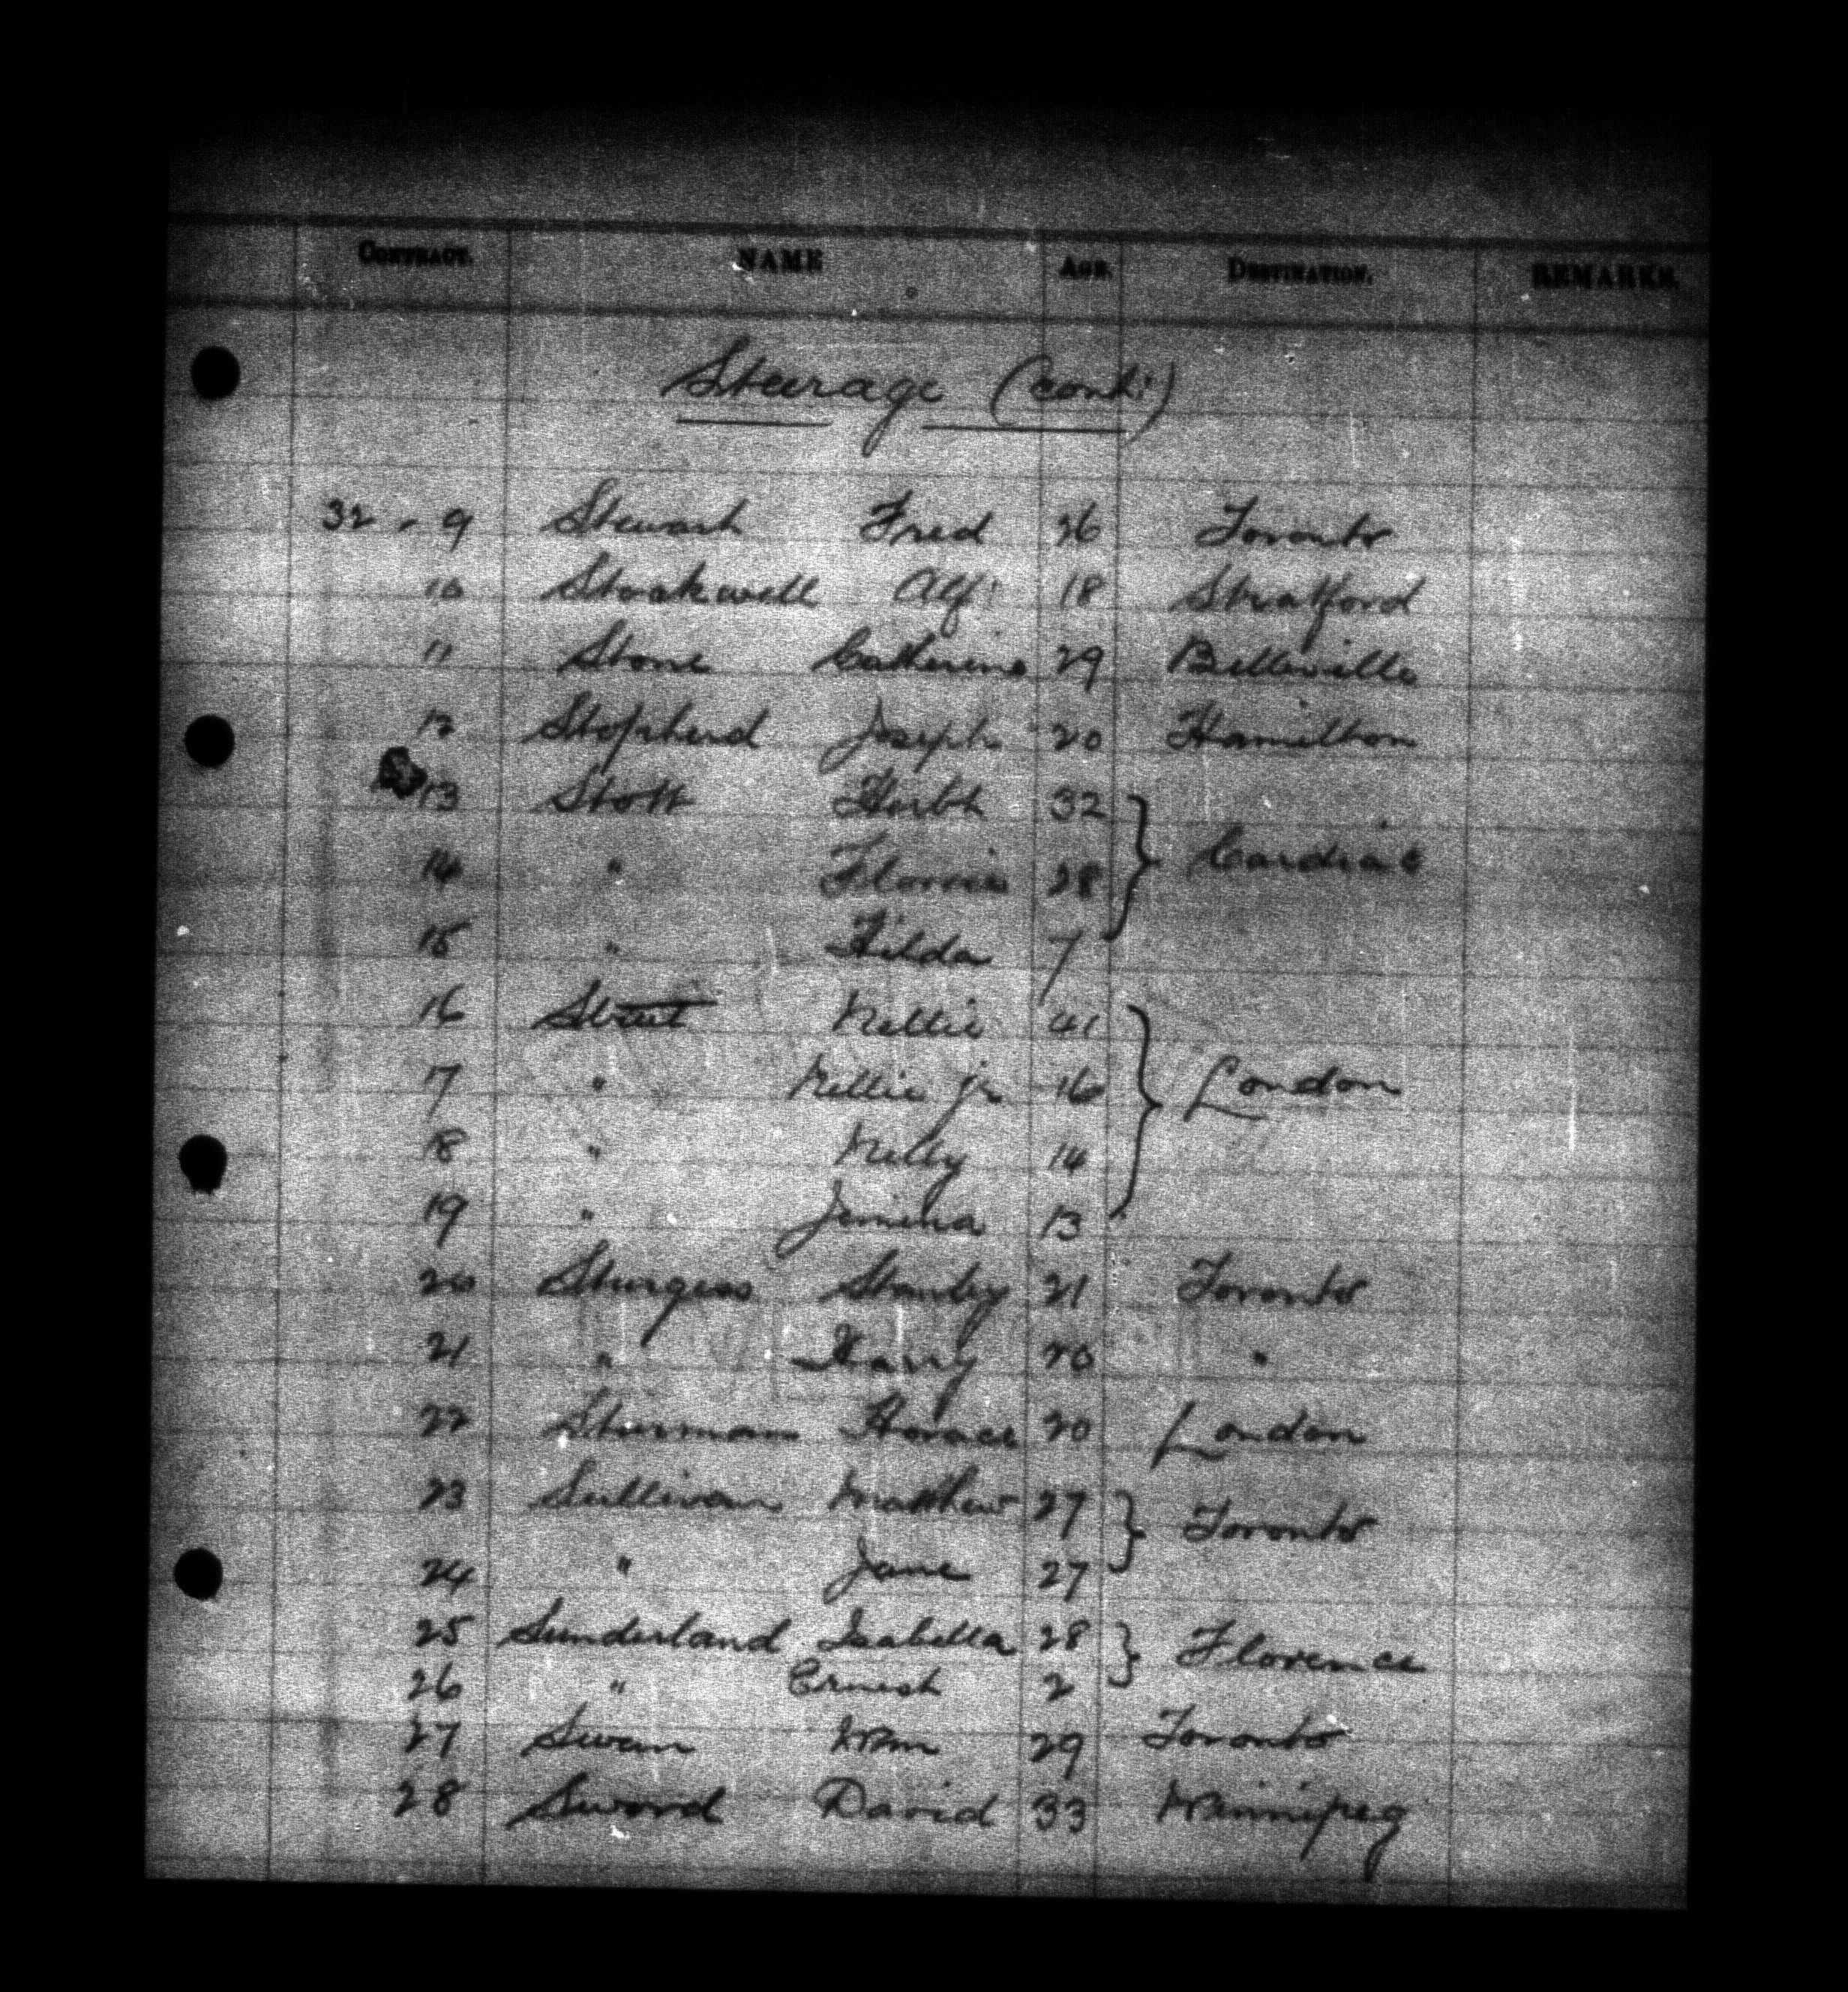 CONTRACT. NAME AGE. DESTINATION. REMARKS.
Steerage (cont:)
32 - 9 Stewart Fred 26 Toronto
10 Stockwell Alf: 18 Stratford
11 Stone Catherine 29 Belleville
12 Stopherd Joseph 20 Hamilton
13 Stott Herbt 32
14 " Florrie 28
15 " Hilda 7
16 Nellie 41
17 " Nellie jr 16 London
18 " 14
19 " Jemima 13
20 Sturgess Stanley 21 Toronto
21 " Harry 20 "
22 Sturman Horace 20 London
23 Sullivan Matthew 27 Toronto
24 " Jane 27
25 Sunderland Isabella 28 Florence
26 " Ernest 2
27 Swan Wm 29 Toronto
28 Sword David 33 Winnipeg